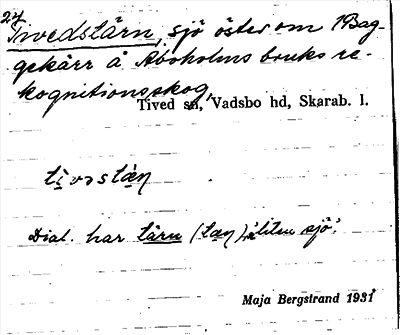 24
Tivedstärn, sjö öster om Bag-
gekärr å Aboholms bruks re-
kognitionsskog,
Tived sn, Vadsbo hd, Skarab. l.
Dial. har tärn (tæn) 'liten sjö'.
Maja Bergstrand 1931